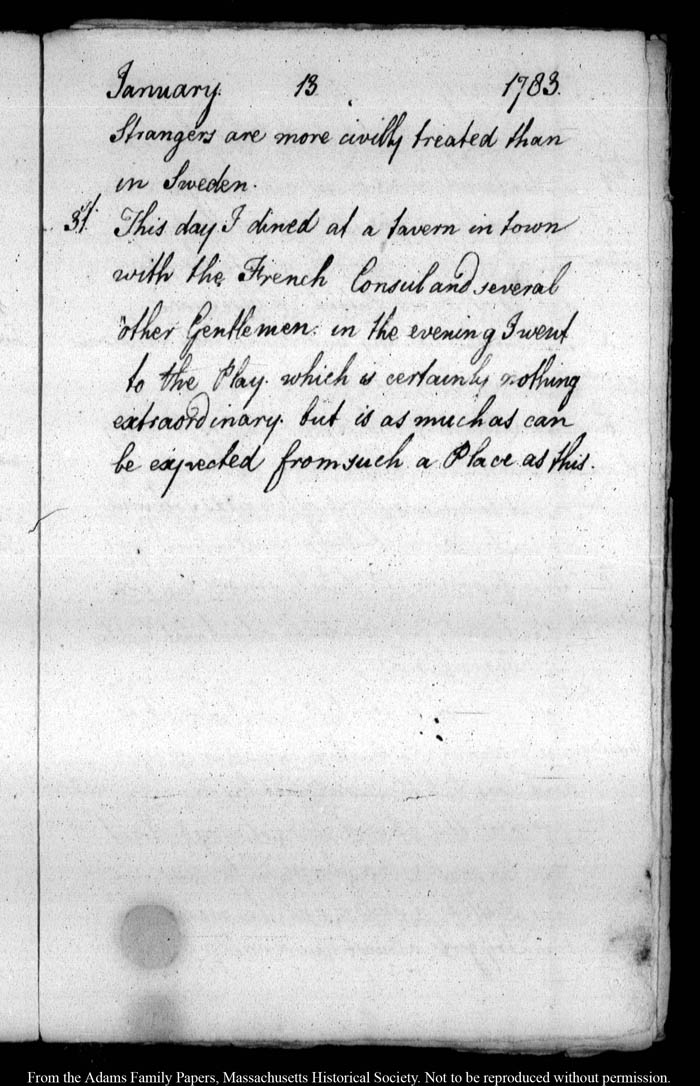 January. 13 1783.
Strangers are more civilly treated than
in Sweden.
31st. This day I dined at a tavern in town
with the French Consul and several
other Gentlemen: in the evening I went
to the Play. which is certainly nothing
extraordinary. but is as much as can
be expected from such a Place as this.
From the Adams Family Papers, Massachusetts Historical Society. Not to be reproduced without permission.